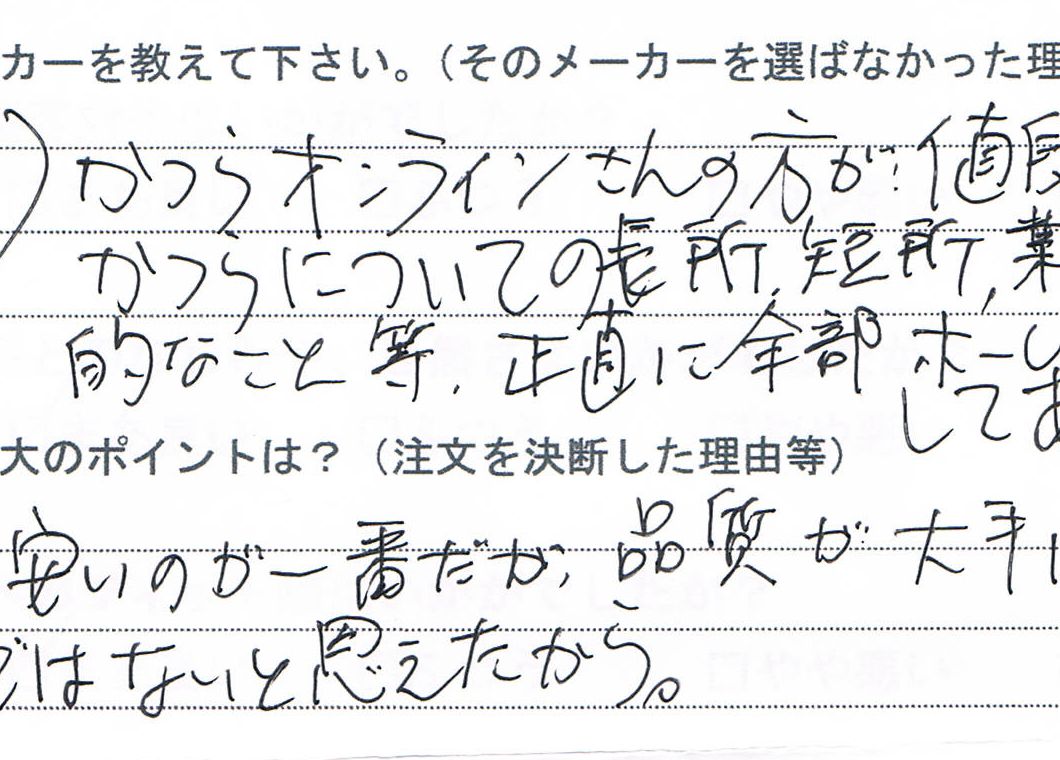 カーを教えて下さい。（そのメーカーを選ばなかった理
)かつらオンラインさんの方が、値段
かつらについての長所、短所、業
的なこと等、正直に全部ホー
してあ
大のポイントは？（注文を決断した理由等）
安いのが一番だが、品質が大手に
ではないと思えたから。